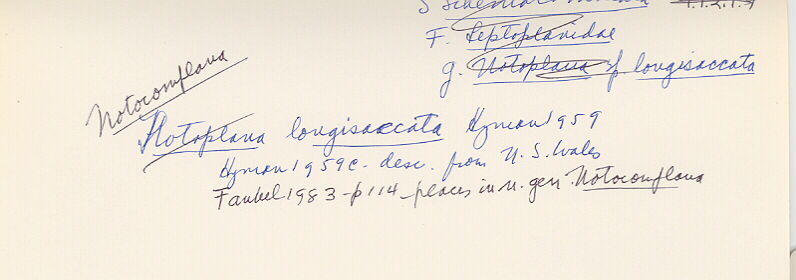 F. Leptoplanidae
g. Notoplana of longisaccata
Notocomplana
Notoplana longisaccata Hyman 1959
Hyman 1959c. desc. from N. S. Wales
Faubel 1983 - p 114 - places in n. gen. Notocomplana